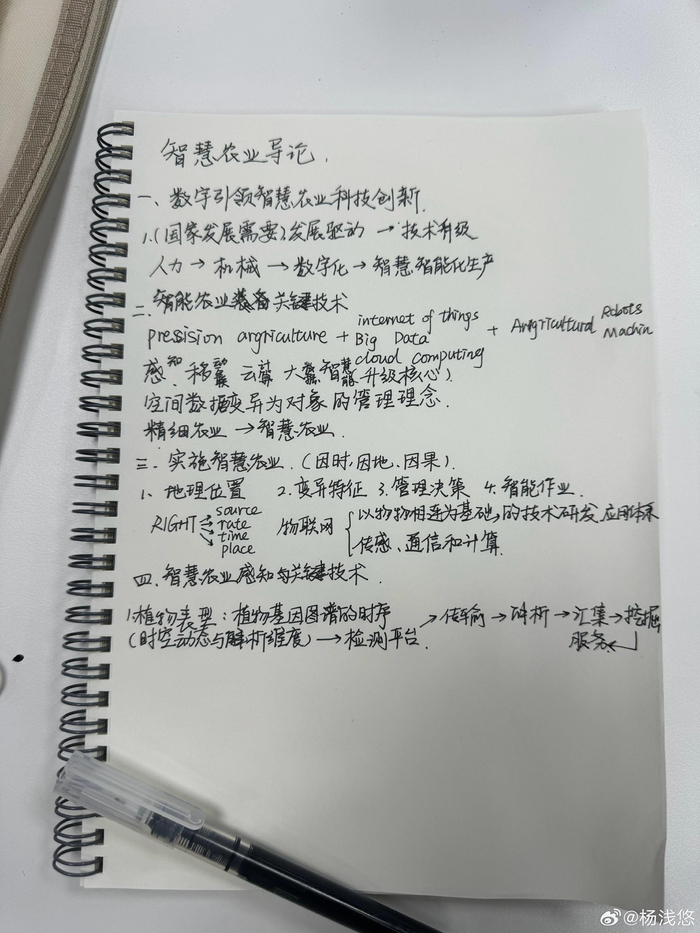 智慧农业导论.
一、数字引领智慧农业科技创新.
1.(国家发展需要)发展驱动 → 技术升级
人力 → 机械 → 数字化 → 智慧智能化生产
二、智能农业装备关键技术
pression argriculture + internet of things Big Data cloud computing + Angricultural Robots Machin
感知、移动 云 大 智慧 升级核心)
空间数据变异为对象的管理理念.
精细农业 → 智慧农业.
三、实施智慧农业.(因时,因地,因果).
1、地理位置 2.变异特征 3.管理决策 4.智能作业.
RIGHT → source rate time place
物联网 { 以物物相连为基础,的技术研发 应用体系
传感、通信和计算.
四、智慧农业感知与关键技术.
1.植物表型:植物基因图谱的时序
(时空动态与解析维度) → 检测平台. → 传输 → 解析 → 汇集 → 挖掘
服务
@杨浅悠